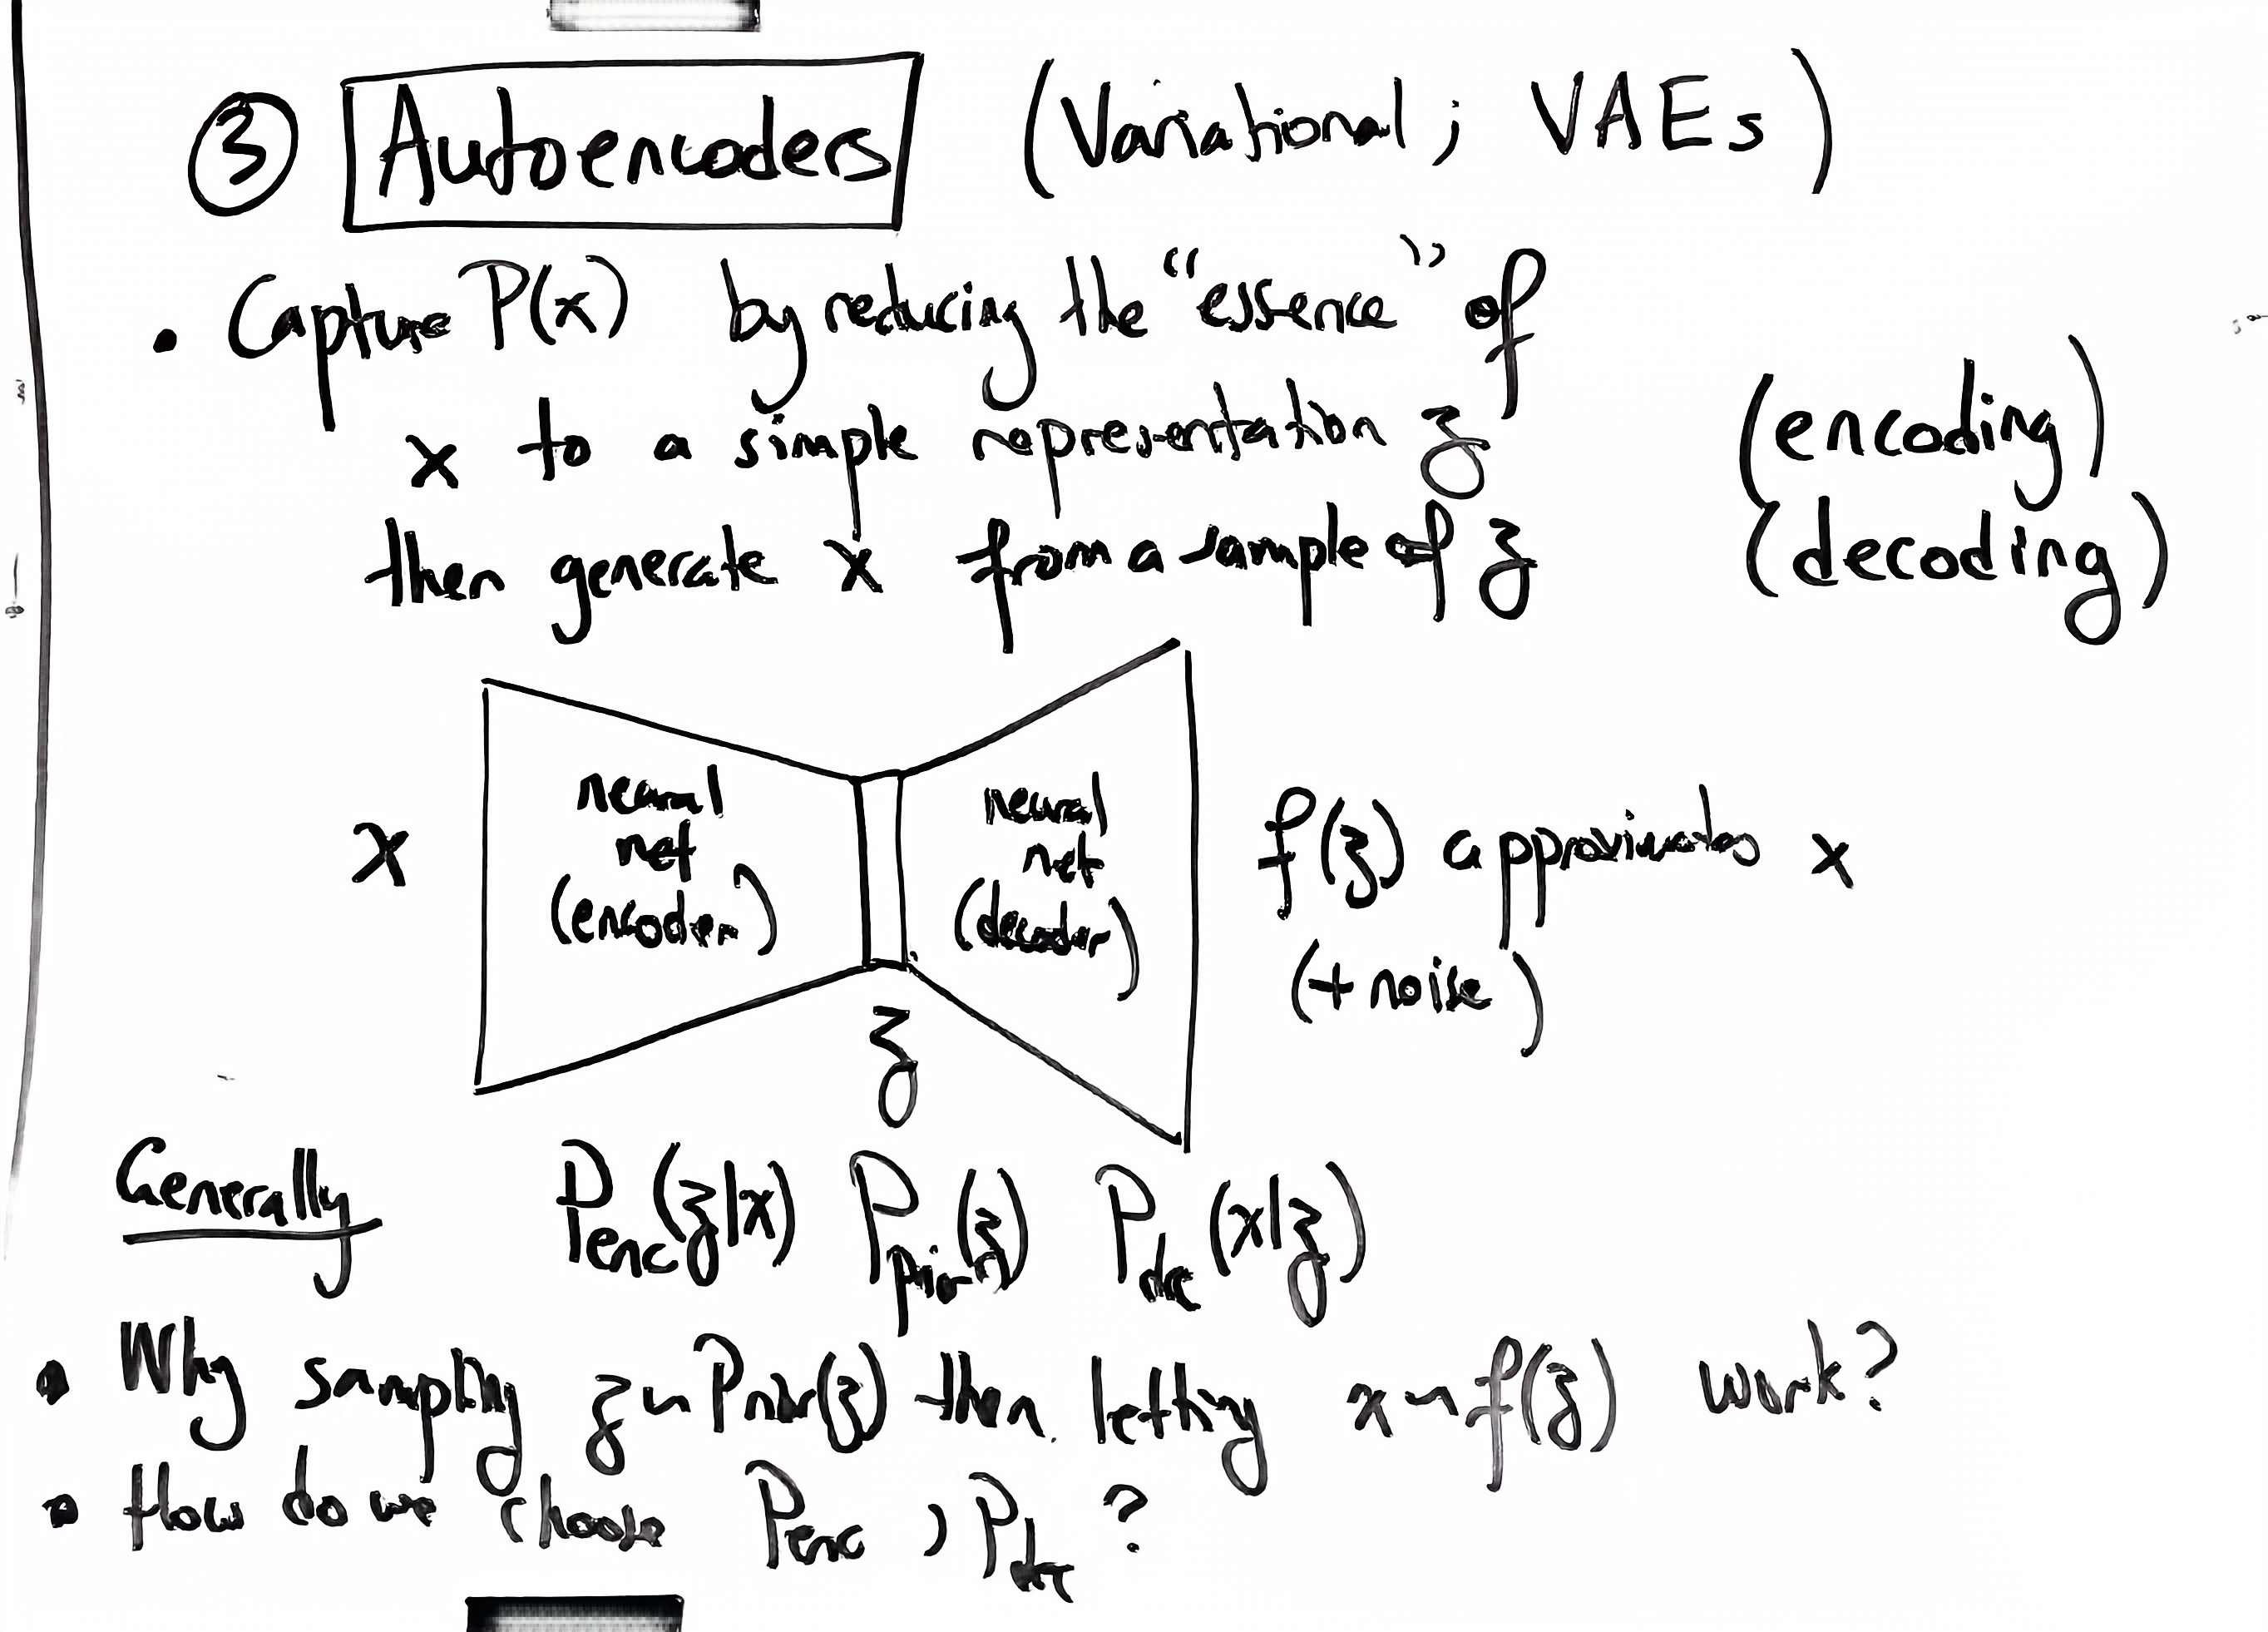 ③ Autoencoders (Variational; VAEs)
• Capture P(x) by reducing the "essence" of
x to a simple representation z (encoding)
then generate x from a sample of z (decoding)
x
neural
net
(encoder)
z
neural
net
(decoder)
f(z) approximates x
(+ noise)
Generally P_enc(z|x) P_prior(z) P_dec(x|z)
• Why sampling z ~ P_prior(z) then letting x ~ f(z) work?
• How do we choose P_enc, P_dec?